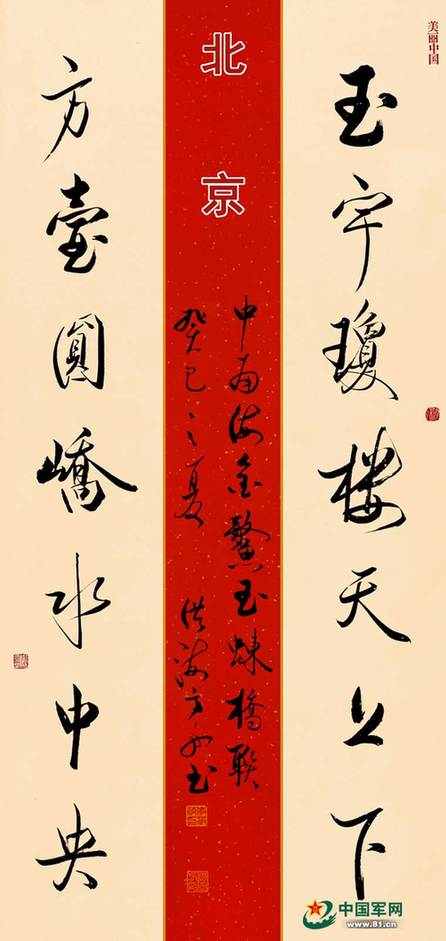 美丽中国
玉宇瓊楼天上下
北京
中南海金鰲玉蝀橋联
癸巳之夏 洪海方书
方壺圓嶠水中央
中国军网
www.81.cn